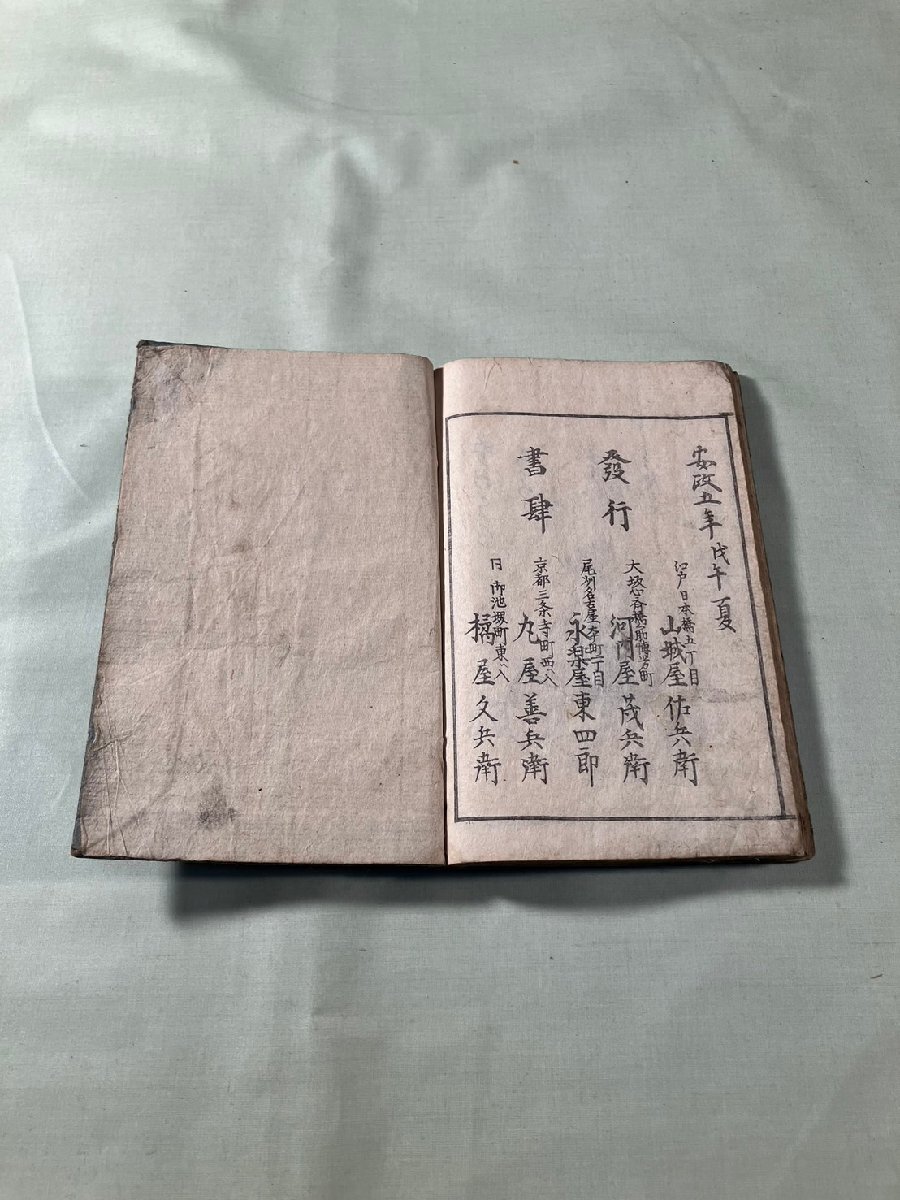 安政五年戊午夏
發行
書肆
江戸日本橋五丁目
山城屋佑兵衛
大坂心斎橋筋博労町
河内屋茂兵衛
尾州名古屋本町丁目
永楽屋東四郎
京都三条寺町西入
丸屋善兵衛
同 御池 町東入
橘屋文兵衛